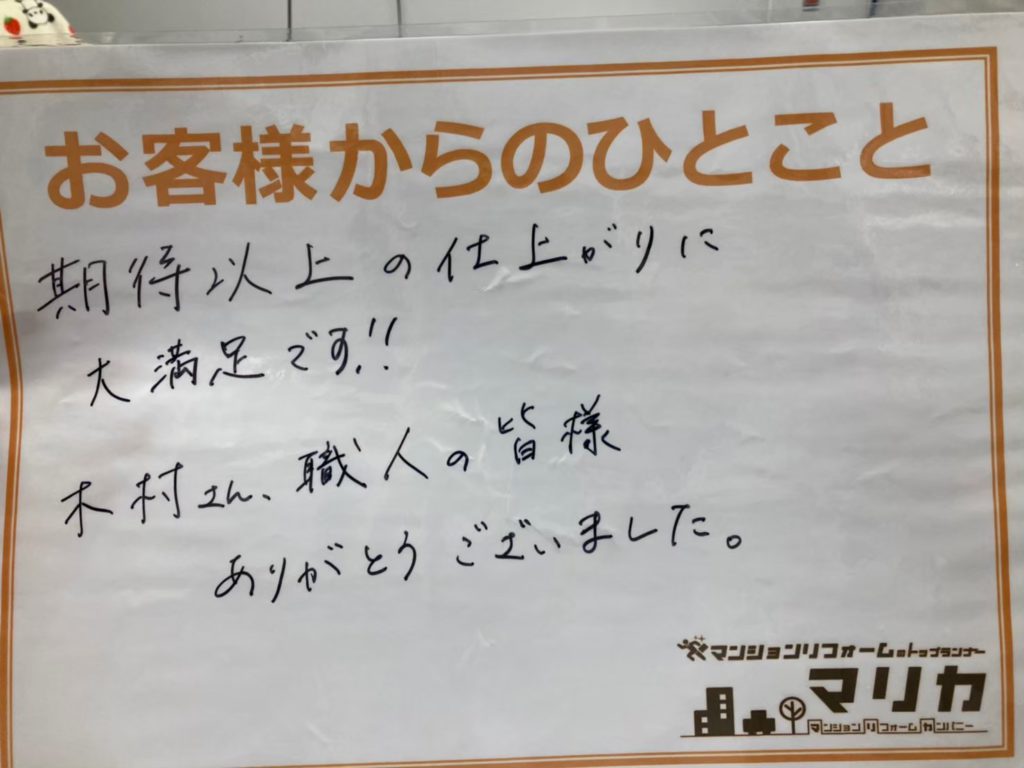 お客様からのひとこと
期待以上の仕上がりに
大満足です!!
木村さん、職人の皆様
ありがとうございました。
マンションリフォームのトップランナー
マリカ
マンションリフォームカンパニー